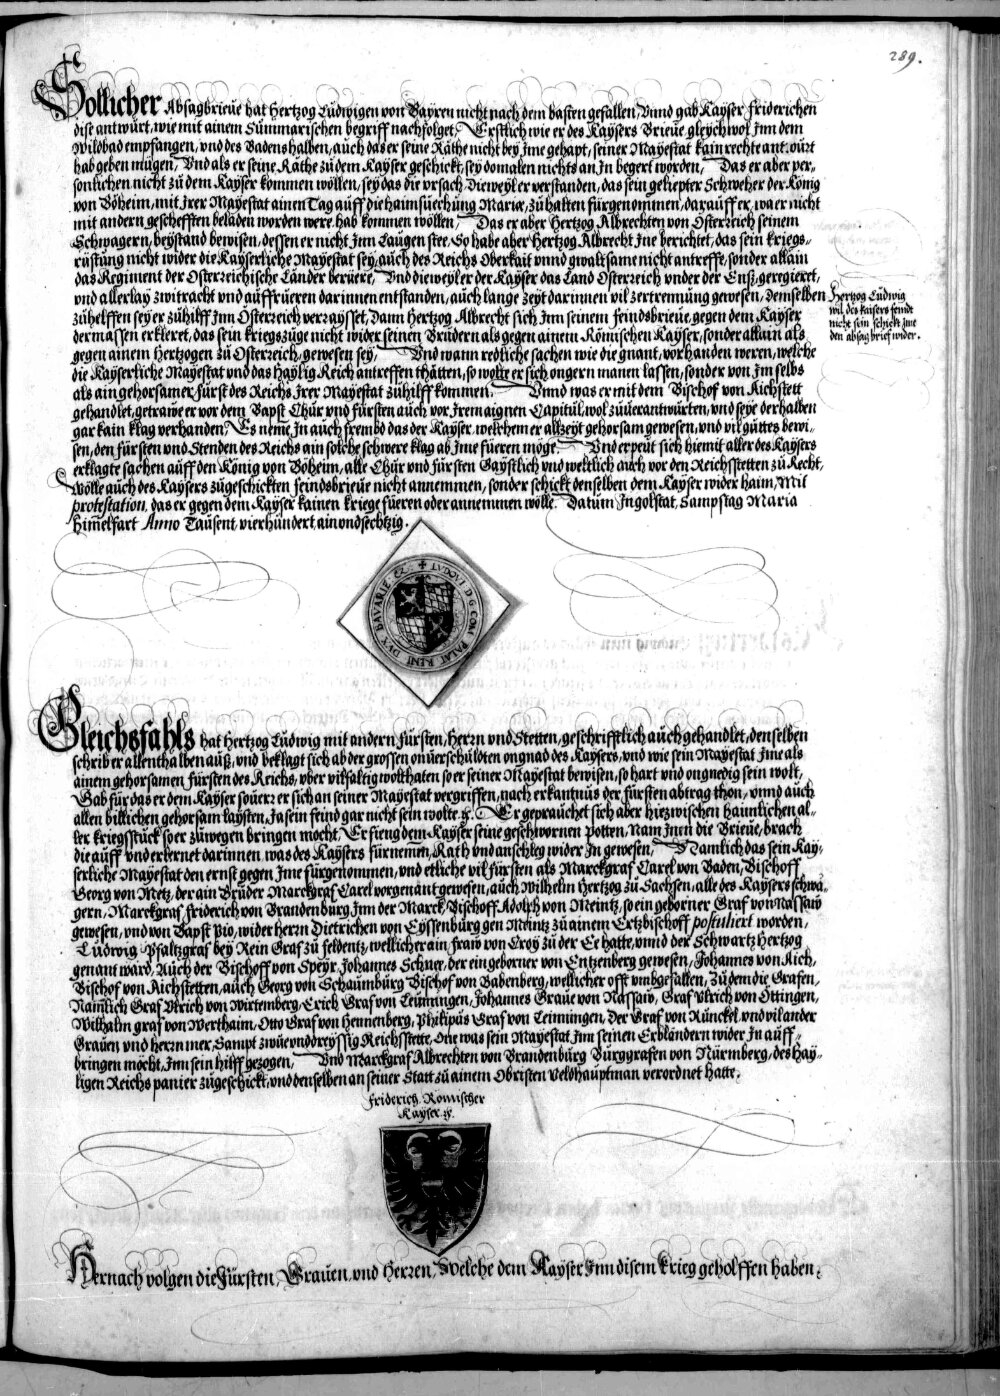 289.
Sollicher Absagbrieüe hat Hertzog Lüdwigen von Bayren nicht nach dem basten gefallen, Vnnd gab Kayser friderichen
dise antwürt, wie mit ainem Sümmarischen begriff nachfolget, Erstlich wie er des Kaysers Brieüe gleychwol Inn dem
Wildbad empfangen, vnd des Badens halben, auch das er seine Räthe nicht bey Ime gehapt, seiner Mayestat kain rechte antwürt
hab geben mügen, Vnd als er seine Räthe zü dem Kayser geschickt, sey domalen nichts an In begert worden, Das er aber per-
sonlichen nicht zü dem Kayser kommen wöllen, sey das die vrsach, Dieweyl er verstanden, das sein geliepter Schweher der König
von Böheim, mit Irer Mayestat ainen Tag auff die haimsüechung Mariæ, zü halten fürgenommen, darauff er, wa er nicht
mit andern geschefften beladen worden were, hab kommen wöllen, Das er aber Hertzog Albrechten von Osterreich seinem
Schwagern, beystand bewisen, dessen er nicht Inn Laügen stee, So habe aber Hertzog Albrecht Ine berichtet, das sein kriegs-
rüstüng nicht wider die Kayserliche Mayestat sey, auch des Reichs Oberkait vnnd gwaltsame nicht antreffe, sonder allain
das Regiment der Osterreichische Länder berüere, Vnd dieweyl er der Kayser das Land Osterreich vnder der Enß, geregieret,
vnd allerlay zwitracht vnd aüffrüeren darinnen entstanden, aüch lange zeyt darinnen vil zertrennüng gewesen, demselben
zühelffen sey er zühilff Inn Osterreich verraysset, Dann Hertzog Albrecht sich Inn seinem feindsbrieüe, gegen dem Kayser
dermassen erkleret, das sein kriegszüge nicht wider seinen Brüdern als gegen ainem Römischen Kayser, sonder allain als
gegen ainem Hertzogen zü Osterreich, gewesen sey, Vnd wann redliche sachen wie die gnant, vorhanden weren, welche
die Kayserliche Mayestat vnd das Haylig Reich antreffen thätten, so wolte er sich ongern manen lassen, sonder von Im selbs
als ain gehorsamer fürst des Reichs Irer Mayestat zühilff kommen. Vnnd was er mit dem Bischof von Aichstett
gehandlet, getrawe er vor dem Bapst Chür vnd fürsten auch vor Irem aignen Capitül, wol züuerantwürten, vnd seye derhalben
gar kain klag verhanden, Es neme In auch frembd das der Kayser, welchem er allzeyt gehorsam gewesen, vnd vil güttes bewi-
sen, den fürsten vnd Stenden des Reichs ain solche schwere klag ab Ime füeren möge. Vnd erpeüt sich hiemit aller des Kaysers
erklagte sachen aüff den König von Böheim, alle Chür vnd fürsten Gaystlich vnd weltlich auch vor den Reichsstetten zü Recht,
Wölle auch des Kaysers zügeschickten feindsbrieüe nicht annemmen, sonder schickt denselben dem Kayser wider haim, Mit
protestation, das er gegen dem Kayser kainen kriege füeren oder annemmen wölle. Datüm Ingolstat, Sampstag Maria
Himelfart Anno Taüsent, vierhündert, ain vnd sechtzig.
Hertzog Lüdwig
wil des kaisers feindt
nicht sein schickt Ime
den absag brief wider.
✝ LVDOVI · D · G · COM · PALAT RENI DVX BAVARIE EZ
Gleichsfahls hat Hertzog Lüdwig mit andern fürsten, Herrn vnd Stetten, geschrifftlich auch gehandlet, denselben
schrib er allenthalben auß, vnd beklagt sich ab der grossen onuerschuldten ongnad des Kaysers, vnd wie sein Mayestat Ime als
ainem gehorsamen fürsten des Reichs, vber vilfaltig wolthaten so er seiner Mayestat bewisen, so hart vnd ongnedig sein wolt,
Gab für das er dem Kayser souerr er sich an seiner Mayestat vergriffen, nach erkantnüs der fürsten abtrag thon, vnnd auch
allen billichen gehorsam laysten, Ja sein feind gar nicht sein wolte ꝛc. Er geprauchet sich aber hiezwischen haimlichen al-
ter kriegsstück so er züwegen bringen mocht, Er fieng dem Kayser seine geschwornen potten, Nam Inen die Brieüe, brach
die auff vnd erlernet darinnen, was des Kaysers fürnemen, Rath vnd anschleg wider In gewesen, Namlich das sein Kay-
serliche Mayestat den ernst gegen Ime fürgenommen, vnd etliche vil fürsten als Marckgraf Carel von Baden, Bischoff
Georg von Metz, der ain Brüder Marckgraf Carel vorgenant gewesen, auch Wilhelm Hertzog zü Sachsen, alle des Kaysers schwä-
gern, Marckgraf friderich von Brandenbürg Inn der Marck, Bischoff Adolph von Meintz, so ein geborner Graf von Nassaw
gewesen, vnd von Bapst Pio, wider herrn Dietrichen von Eyssenbürg gen Meintz zü ainem Ertzbischoff postuliert worden,
Lüdwig Pfaltzgraf bey Rein Graf zü feldentz, wellicher ain fraw von Croy zü der Ee hatte, vnnd der Schwartz Hertzog
genant ward, Auch der Bischoff von Speyr, Johannes Schner, der ein geborner von Entzenberg gewesen, Johannes von Aich,
Bischof von Aichstetten, auch Georg von Schaümbürg Bischof von Babenberg, wellicher offt vmbgefallen, Zü dem die Grafen,
Nämlich Graf Vlrich von Wirtemberg, Erich Graf von Leiningen, Johannes Graue von Nassaw, Graf Vlrich von Öttingen,
Wilhalm graf von Werthaim, Otto Graf von Hennenberg, Philipüs Graf von Leiningen, Der Graf von Rünckel vnd vil ander
Graüen vnd herrn mer, Sampt zwüeünddreyssig Reichsstette, One was sein Mayestat Inn seinen Erbländern wider In auff-
bringen möcht, Inn sein hilff gezogen, Vnd Marckgraf Albrechten von Brandenbürg Bürggrafen von Nürmberg, des Hay-
ligen Reichs panier zügeschickt, vnd denselben an seiner Statt zü ainem Obristen Veldhaüptman verordnet hatte.
friderich Römischer
Kayser ꝛc.
Hernach volgen die Fürsten, Graüen, vnd Herren, Welche dem Kayser Inn disem krieg geholffen haben.